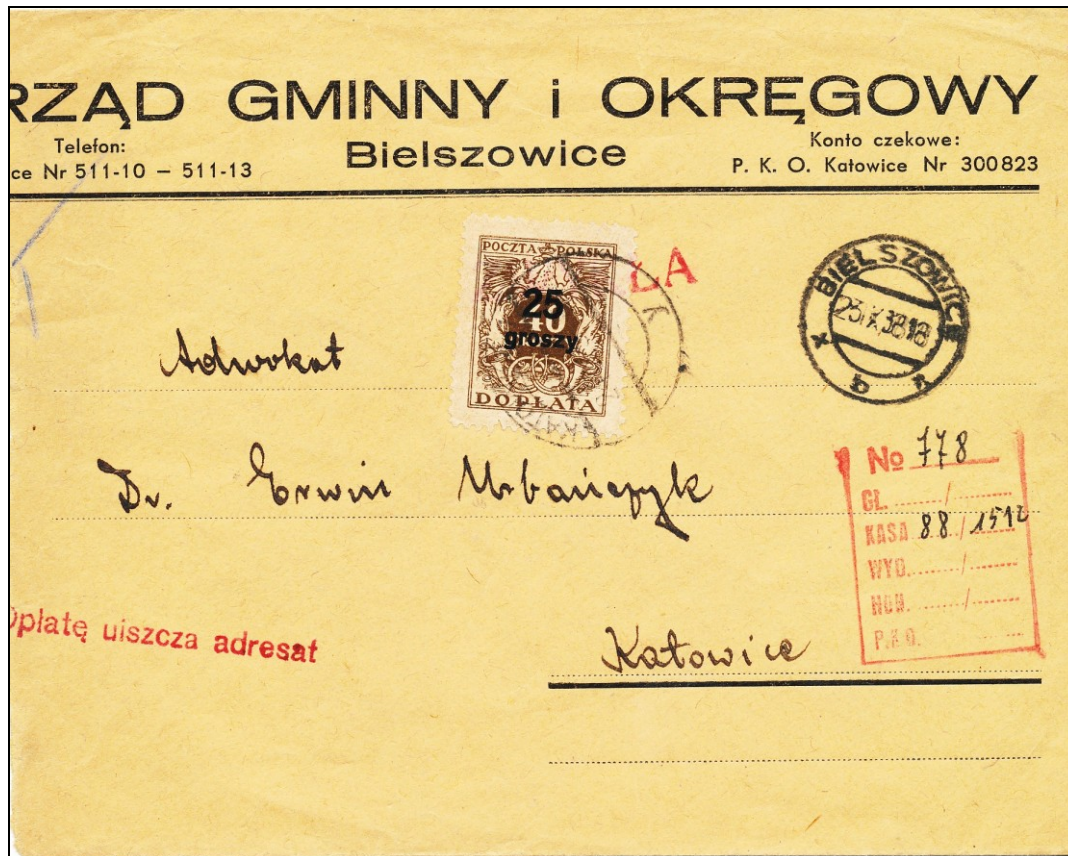 RZĄD GMINNY i OKRĘGOWY
Telefon:
ce Nr 511-10 – 511-13
Bielszowice
Konto czekowe:
P. K. O. Katowice Nr 300823
POCZTA POLSKA
25
40
groszy
DOPŁATA
ŁA
BIELSZOWICE
b
Adwokat
Dr. Erwin Urbańczyk
No 778
GŁ. /
KASA 88/1512
WYD. /
P.K.O.
Opłatę uiszcza adresat
Katowice